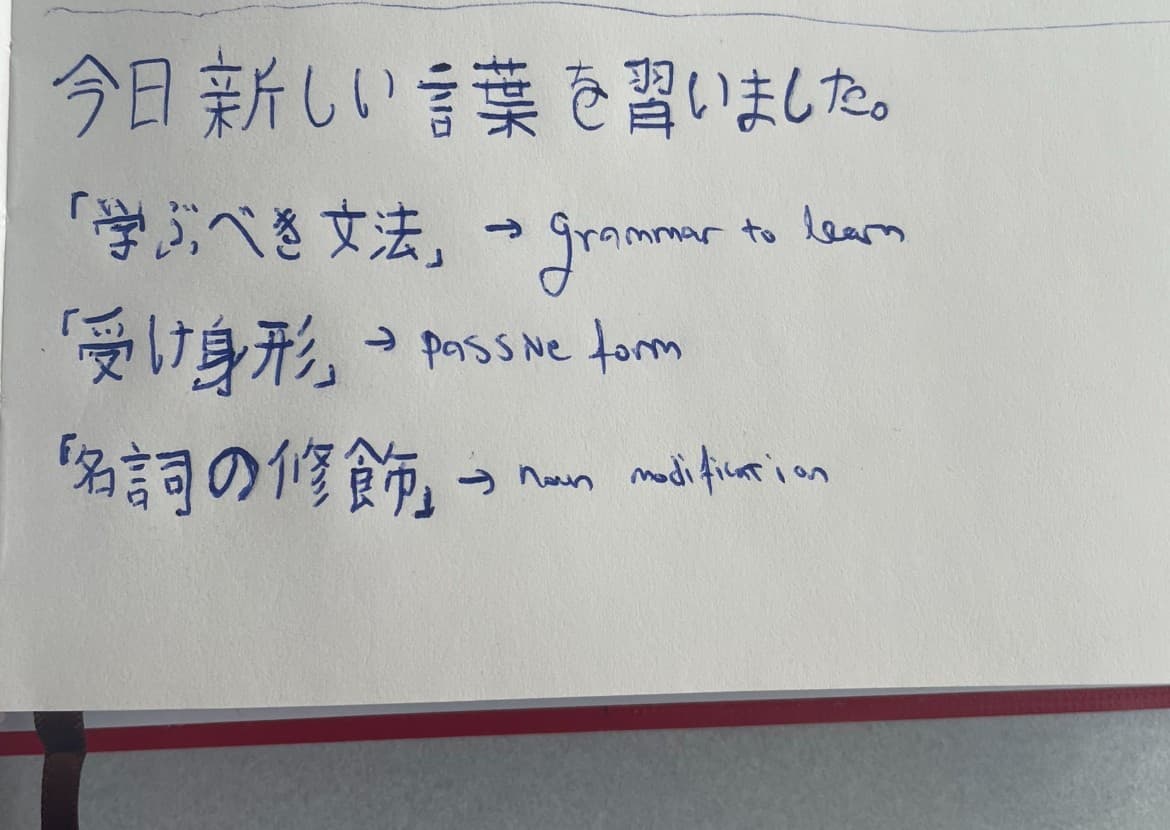 今日新しい言葉を習いました。
「学ぶべき文法」→ grammar to learn
「受け身形」→ passive form
「名詞の修飾」→ noun modification